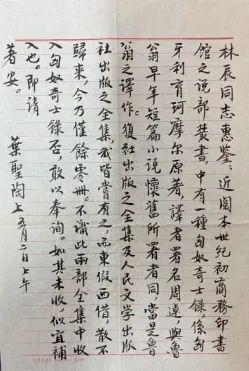 林辰同志惠鑒：近閱本世紀初商務印書
館之說部叢書，中有一種匈奴奇士錄，係匈
牙利育珂摩尔原著，譯者署名周逴，與魯
翁早年短篇小說懷舊所署者同，當是魯
翁之譯作。復社出版之全集及人民文學出版
社出版之全集我皆嘗有之，而東假西借，散不
歸來，今乃僅餘零册。不識此兩部全集中收
入匈奴奇士錄否，敢以奉詢。如其未收，似宜補
入也。即請
著安。
葉聖陶上 月二日上午